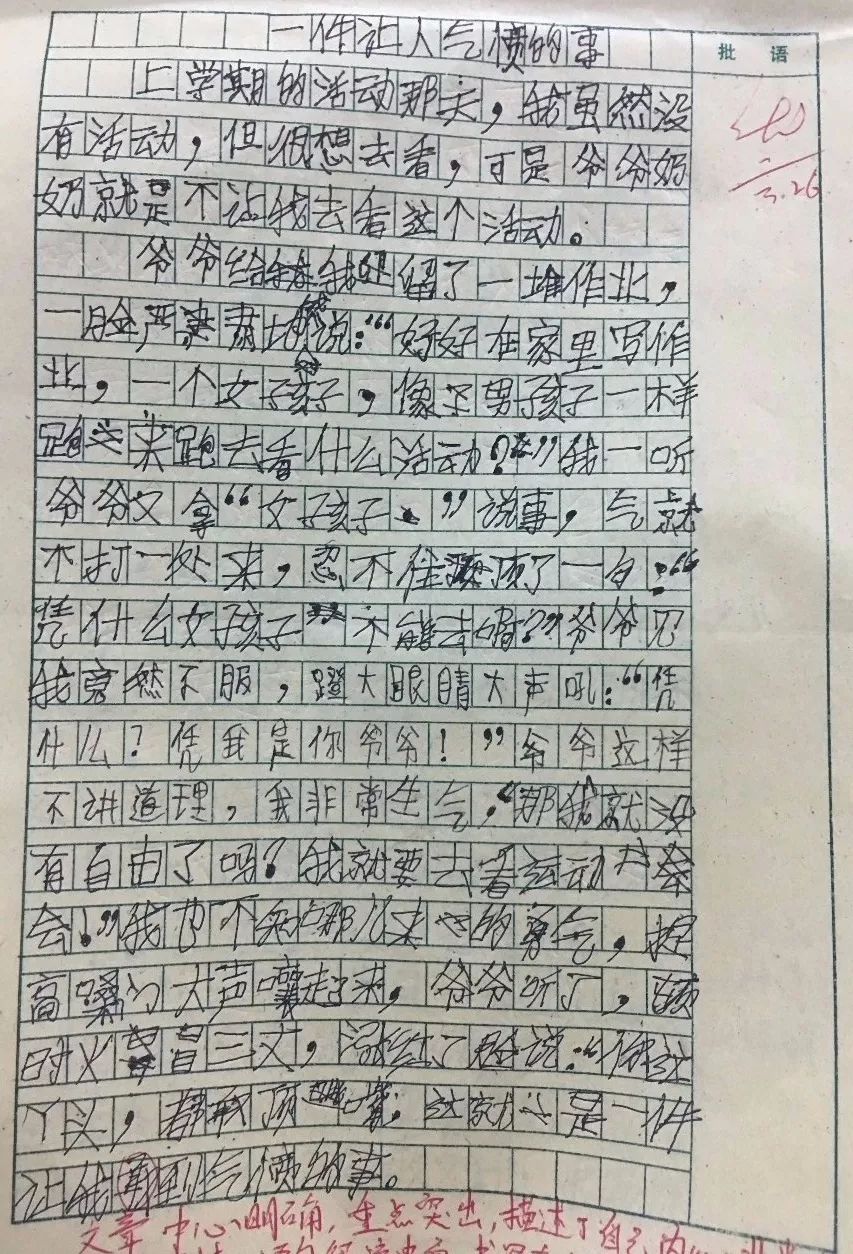 一件让人气愤的事
批 语
上学期的活动那天，我虽然没
有活动，但很想去看，可是爷爷奶
奶就是不让我去看这个活动。
3.26
爷爷给我留了一堆作业，
一脸严肃地说：“好好在家里写作
业，一个女孩子，像个男孩子一样
跑来跑去看什么活动？”我一听
爷爷又拿“女孩子”说事，气就
不打一处来，忍不住顶了一句：“
凭什么女孩子不能去啊？”爷爷见
我竟然不服，蹬大眼睛大声吼：“凭
什么？凭我是你爷爷！”爷爷这样
不讲道理，我非常生气，“那我就没
有自由了吗？我就要去看运动
会！”我也不知哪儿来的勇气，提
高嗓门大声嚷起来，爷爷听了，顿
时火冒三丈，涨红了脸说：“你这
丫头，都我顶嘴，这就是一件
让我感到气愤的事。
文章中心明确，重点突出，描述了自己内心